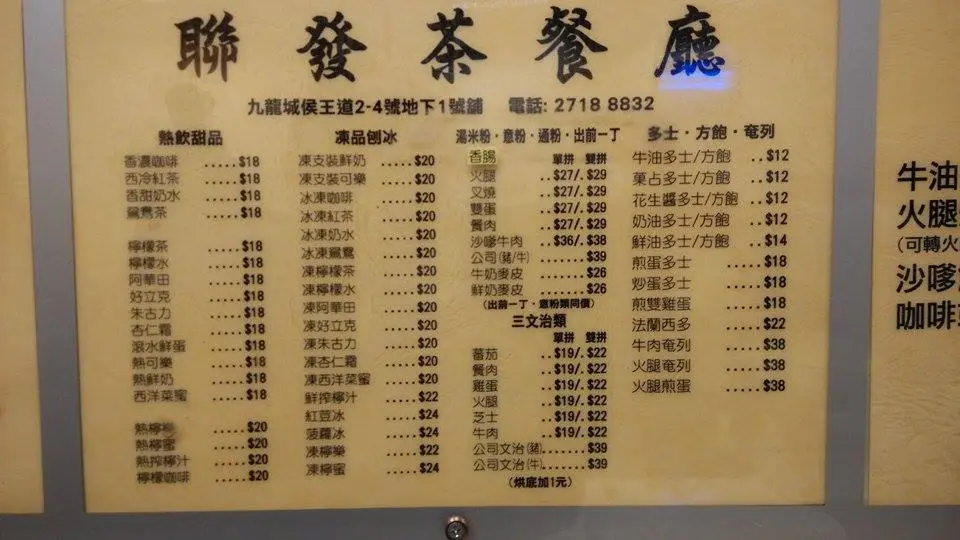 聯發茶餐廳
九龍城侯王道2-4號地下1號舖 電話: 2718 8832
熱飲甜品
香濃咖啡 .....$18
西冷紅茶 .....$18
香甜奶水 .....$18
鴛鴦茶 .....$18
檸檬茶 .....$18
檸檬水 .....$18
阿華田 .....$18
好立克 .....$18
朱古力 .....$18
杏仁霜 .....$18
滾水鮮蛋 .....$18
熱可樂 .....$18
熱鮮奶 .....$18
西洋菜蜜 .....$18
熱檸樂 .....$20
熱檸蜜 .....$20
熱搾檸汁 .....$20
檸檬咖啡 .....$20
凍品刨冰
凍支裝鮮奶 .....$20
凍支裝可樂 .....$20
冰凍咖啡 .....$20
冰凍紅茶 .....$20
冰凍奶水 .....$20
冰凍鴛鴦 .....$20
凍檸檬茶 .....$20
凍檸檬水 .....$20
凍阿華田 .....$20
凍好立克 .....$20
凍朱古力 .....$20
凍杏仁霜 .....$20
凍西洋菜蜜 .....$20
鮮搾檸汁 .....$22
紅豆冰 .....$24
菠蘿冰 .....$24
凍檸樂 .....$22
凍檸蜜 .....$24
湯米粉·意粉·通粉·出前一丁
香腸 單拼 雙拼
火腿 ..$27/. $29
叉燒 ..$27/. $29
雙蛋 ..$27/. $29
餐肉 ..$27/. $29
沙嗲牛肉 ..$36/. $38
公司(豬/牛) .....$39
牛奶麥皮 .....$26
鮮奶麥皮 .....$26
(出前一丁·意粉類同價)
三文治類
單拼 雙拼
蕃茄 ..$19/. $22
餐肉 ..$19/. $22
雞蛋 ..$19/. $22
火腿 ..$19/. $22
芝士 ..$19/. $22
牛肉 ..$19/. $22
公司文治(豬).......$39
公司文治(牛).......$39
(烘底加1元)
多士·方飽·奄列
牛油多士/方飽 ..$12
菓占多士/方飽 ..$12
花生醬多士/方飽 ..$12
奶油多士/方飽 ..$12
鮮油多士/方飽 ..$14
煎蛋多士 .....$18
炒蛋多士 .....$18
煎雙雞蛋 .....$18
法蘭西多 .....$22
牛肉奄列 .....$38
火腿奄列 .....$38
火腿煎蛋 .....$38
牛油
火腿
(可轉火
沙嗲
咖啡